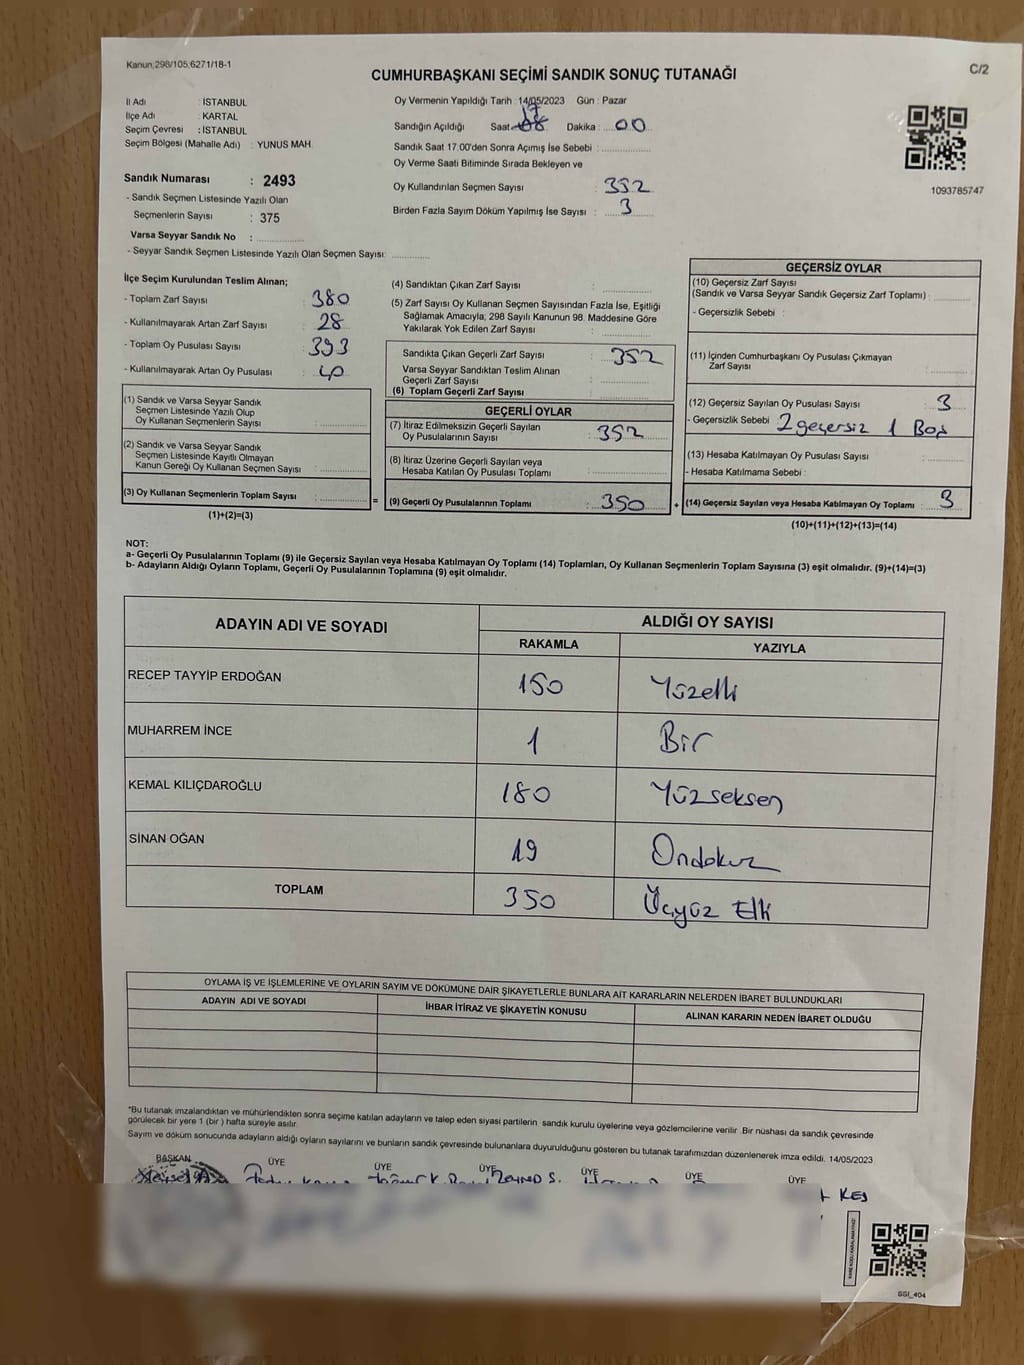 Kanun;298/105;6271/18-1
C/2
CUMHURBAŞKANI SEÇİMİ SANDIK SONUÇ TUTANAĞI
İl Adı : İSTANBUL
İlçe Adı : KARTAL
Seçim Çevresi : İSTANBUL
Seçim Bölgesi (Mahalle Adı) : YUNUS MAH.
Sandık Numarası : 2493
- Sandık Seçmen Listesinde Yazılı Olan
Seçmenlerin Sayısı : 375
Varsa Seyyar Sandık No :
- Seyyar Sandık Seçmen Listesinde Yazılı Olan Seçmen Sayısı:
Oy Vermenin Yapıldığı Tarih : 14/05/2023 Gün : Pazar
Sandığın Açıldığı Saat 17 Dakika : 00
Sandık Saat 17.00'den Sonra Açımış İse Sebebi :
Oy Verme Saati Bitiminde Sırada Bekleyen ve
Oy Kullandırılan Seçmen Sayısı : 352
Birden Fazla Sayım Döküm Yapılmış İse Sayısı : 3
1093785747
İlçe Seçim Kurulundan Teslim Alınan;
- Toplam Zarf Sayısı : 380
- Kullanılmayarak Artan Zarf Sayısı : 28
- Toplam Oy Pusulası Sayısı : 393
- Kullanılmayarak Artan Oy Pusulası :
(1) Sandık ve Varsa Seyyar Sandık
Seçmen Listesinde Yazılı Olup
Oy Kullanan Seçmenlerin Sayısı :
(2) Sandık ve Varsa Seyyar Sandık
Seçmen Listesinde Kayıtlı Olmayan
Kanun Gereği Oy Kullanan Seçmen Sayısı :
(3) Oy Kullanan Seçmenlerin Toplam Sayısı :
(1)+(2)=(3)
=
(4) Sandıktan Çıkan Zarf Sayısı :
(5) Zarf Sayısı Oy Kullanan Seçmen Sayısından Fazla İse, Eşitliği
Sağlamak Amacıyla; 298 Sayılı Kanunun 98. Maddesine Göre
Yakılarak Yok Edilen Zarf Sayısı :
Sandıkta Çıkan Geçerli Zarf Sayısı : 352
Varsa Seyyar Sandıktan Teslim Alınan
Geçerli Zarf Sayısı :
(6) Toplam Geçerli Zarf Sayısı :
GEÇERLİ OYLAR
(7) İtiraz Edilmeksizin Geçerli Sayılan
Oy Pusulalarının Sayısı : 352
(8) İtiraz Üzerine Geçerli Sayılan veya
Hesaba Katılan Oy Pusulası Toplamı :
(9) Geçerli Oy Pusulalarının Toplamı : 350
+
GEÇERSİZ OYLAR
(10) Geçersiz Zarf Sayısı
(Sandık ve Varsa Seyyar Sandık Geçersiz Zarf Toplamı) :
- Geçersizlik Sebebi :
(11) İçinden Cumhurbaşkanı Oy Pusulası Çıkmayan
Zarf Sayısı :
(12) Geçersiz Sayılan Oy Pusulası Sayısı : 3
- Geçersizlik Sebebi : 2 geçersiz 1 Boş
(13) Hesaba Katılmayan Oy Pusulası Sayısı :
- Hesaba Katılmama Sebebi :
(14) Geçersiz Sayılan veya Hesaba Katılmayan Oy Toplamı : 3
(10)+(11)+(12)+(13)=(14)
NOT:
a- Geçerli Oy Pusulalarının Toplamı (9) ile Geçersiz Sayılan veya Hesaba Katılmayan Oy Toplamı (14) Toplamları, Oy Kullanan Seçmenlerin Toplam Sayısına (3) eşit olmalıdır. (9)+(14)=(3)
b- Adayların Aldığı Oyların Toplamı, Geçerli Oy Pusulalarının Toplamına (9) eşit olmalıdır.
ADAYIN ADI VE SOYADI
ALDIĞI OY SAYISI
RAKAMLA YAZIYLA
RECEP TAYYİP ERDOĞAN 150 Yüzelli
MUHARREM İNCE 1 Bir
KEMAL KILIÇDAROĞLU 180 Yüzseksen
SİNAN OĞAN 19 Ondokuz
TOPLAM 350 Üçyüz Elli
OYLAMA İŞ VE İŞLEMLERİNE VE OYLARIN SAYIM VE DÖKÜMÜNE DAİR ŞİKAYETLERLE BUNLARA AİT KARARLARIN NELERDEN İBARET BULUNDUKLARI
ADAYIN ADI VE SOYADI İHBAR İTİRAZ VE ŞİKAYETİN KONUSU ALINAN KARARIN NEDEN İBARET OLDUĞU
*Bu tutanak imzalandıktan ve mühürlendikten sonra seçime katılan adayların ve talep eden siyasi partilerin sandık kurulu üyelerine veya gözlemcilerine verilir. Bir nüshası da sandık çevresinde
görülecek bir yere 1 (bir ) hafta süreyle asılır.
Sayım ve döküm sonucunda adayların aldığı oyların sayılarını ve bunların sandık çevresinde bulunanlara duyurulduğunu gösteren bu tutanak tarafımızdan düzenlenerek imza edildi. 14/05/2023
BAŞKAN ÜYE ÜYE ÜYE ÜYE ÜYE ÜYE
SSI_404